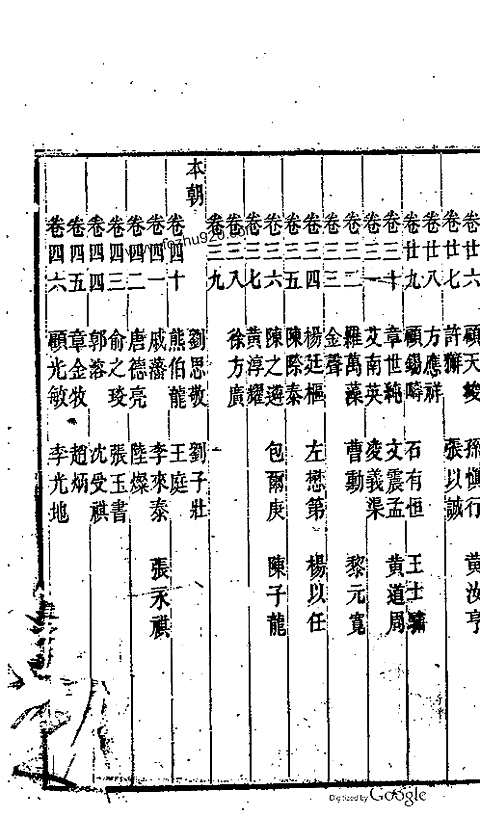 卷廿六 顧天埈 孫愼行 黄汝亨
卷廿七 許獬 張以誠
卷廿八 方應祥
卷廿九 顧錫疇 石有恒 王士驌
卷三十 章世純 文震孟 黄道周
卷三一 艾南英 凌義渠
卷三二 羅萬藻 曹勳 黎元寬
卷三三 金聲
卷三四 楊廷樞 左懋第 楊以任
卷三五 陳際泰
卷三六 陳之遴 包爾庚 陳子龍
卷三七 黄淳耀
卷三八 徐方廣
卷三九
本朝 劉思敬 劉子壯
卷四十 熊伯龍 王庭
卷四一 戚藩 李來泰 張永祺
卷四二 唐德亮 陸燦
卷四三 俞之琰 張玉書
卷四四 郭濬 沈受祺
卷四五 章金牧 趙炳
卷四六 顧光敏 李光地
Digitized by Google